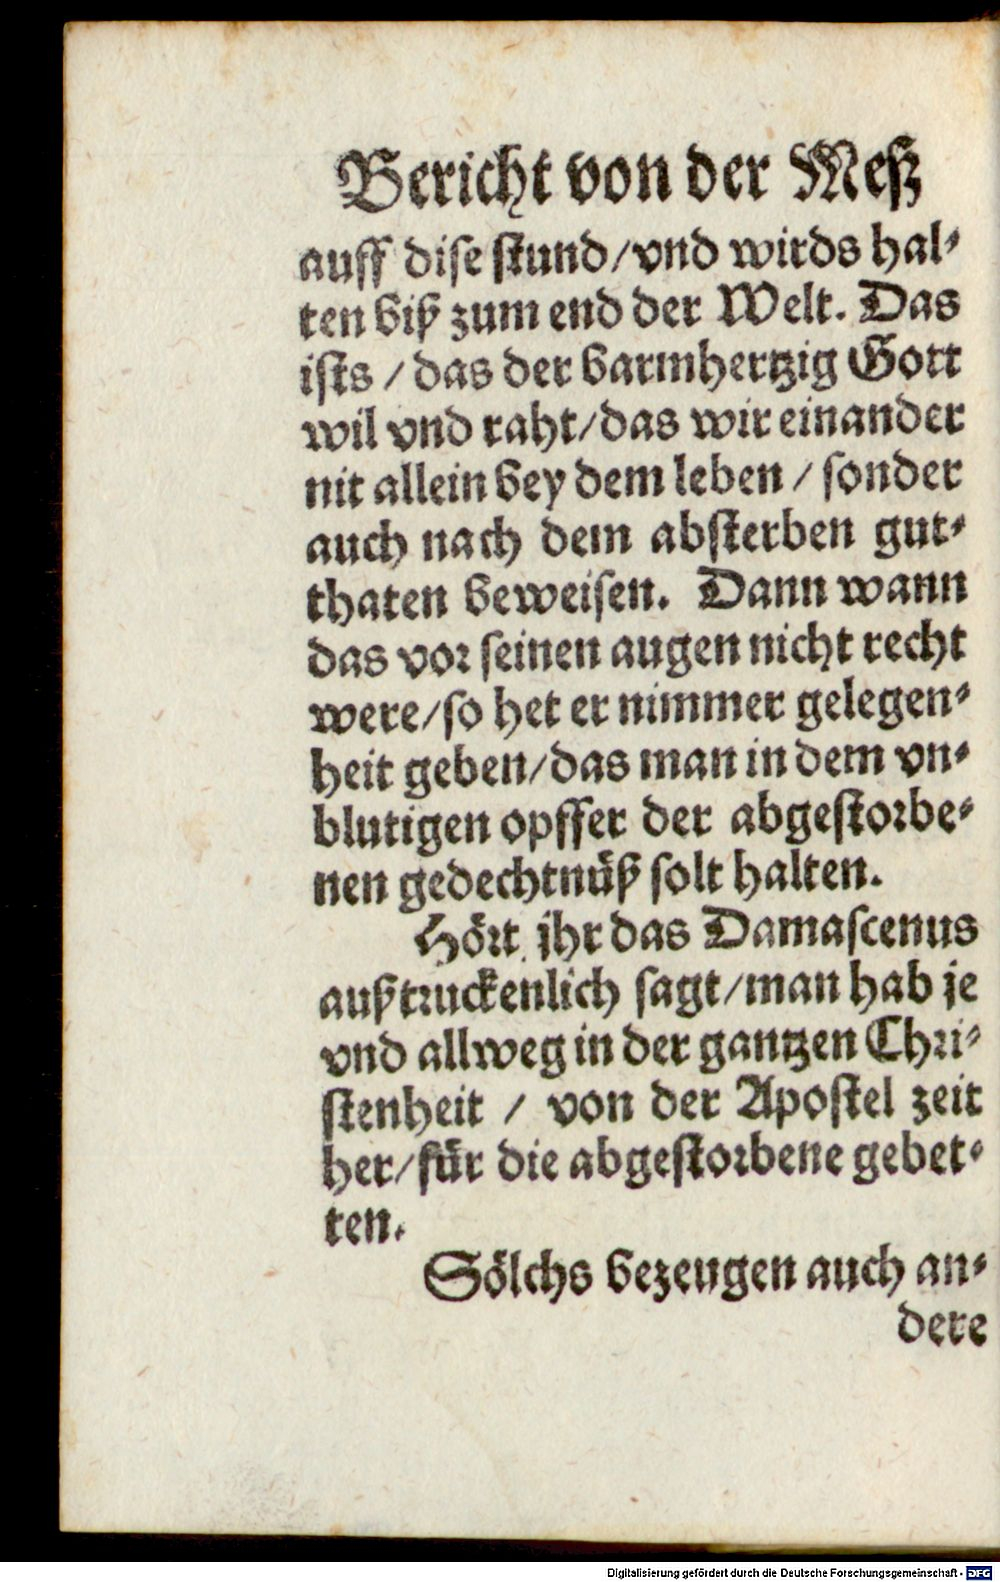 Bericht von der Meß
auff dise stund/vnd wirds hal-
ten biß zum end der Welt. Das
ists / das der barmhertzig Gott
wil vnd raht/das wir einander
nit allein bey dem leben / sonder
auch nach dem absterben gut-
thaten beweisen. Dann wann
das vor seinen augen nicht recht
were/so het er nimmer gelegen-
heit geben/das man in dem vn-
blutigen opffer der abgestorbe-
nen gedechtnüß solt halten.
Hört jhr das Damascenus
außtruckenlich sagt/man hab je
vnd allweg in der gantzen Chri-
stenheit / von der Apostel zeit
her/für die abgestorbene gebet-
ten.
Sölchs bezeugen auch an-
dere
Digitalisierung gefördert durch die Deutsche Forschungsgemeinschaft - DFG